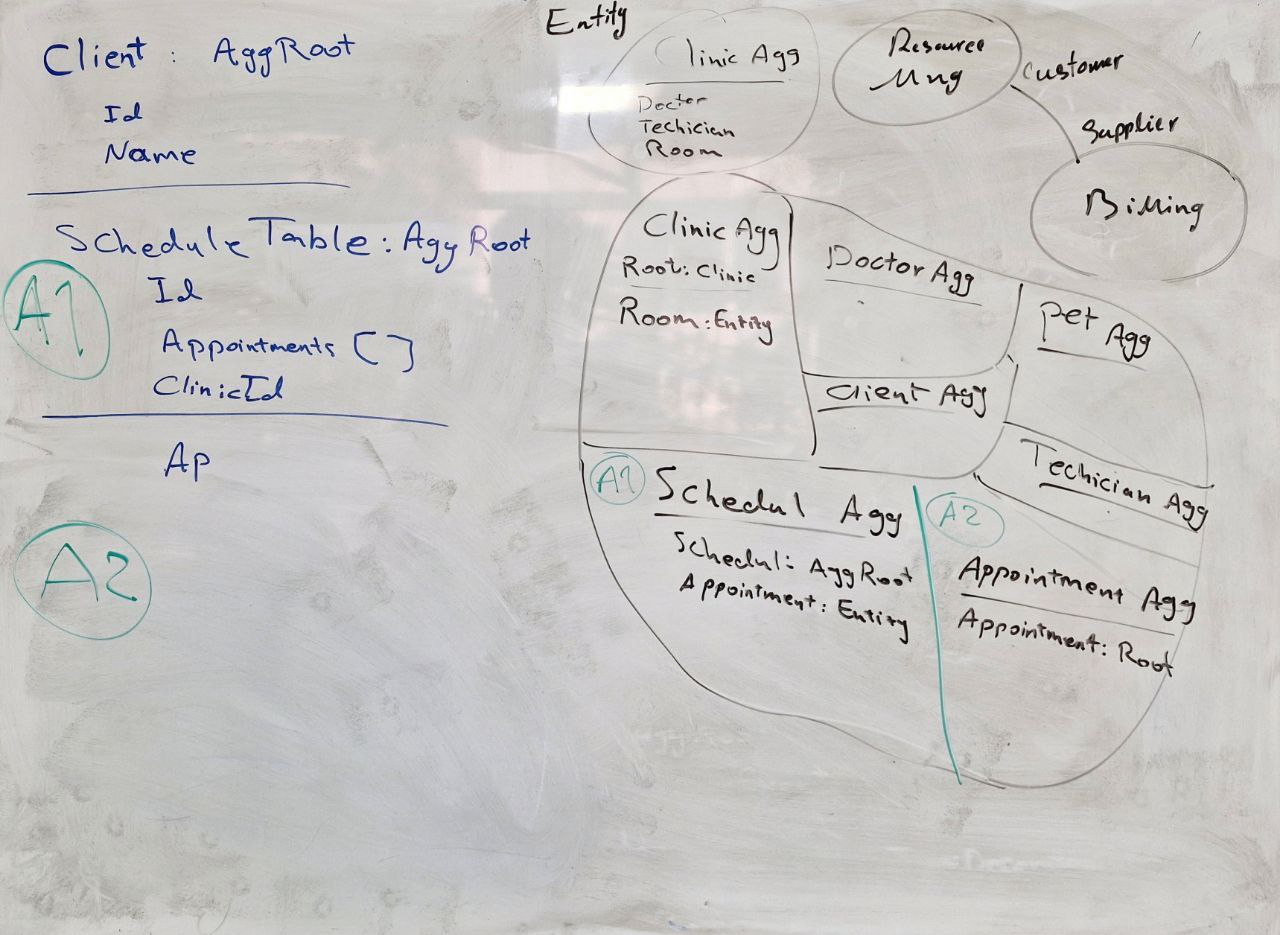 Client : AggRoot
Id
Name
Schedule Table : Agg Root
A1
Id
Appointments []
ClinicId
Ap
A2
Entity
Clinic Agg
Doctor
Techician
Room
Resource
Mng
Customer
Supplier
Billing
Clinic Agg
Root: Clinic
Room: Entity
Doctor Agg
Pet Agg
Client Agg
Techician Agg
A1
Schedul Agg
Schedul: AggRoot
Appointment: Entity
A2
Appointment Agg
Appointment: Root